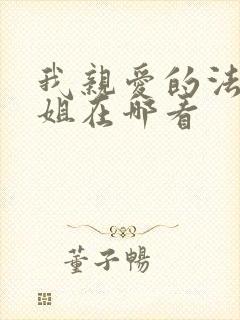 我親愛的法
姐在哪看
董子暢